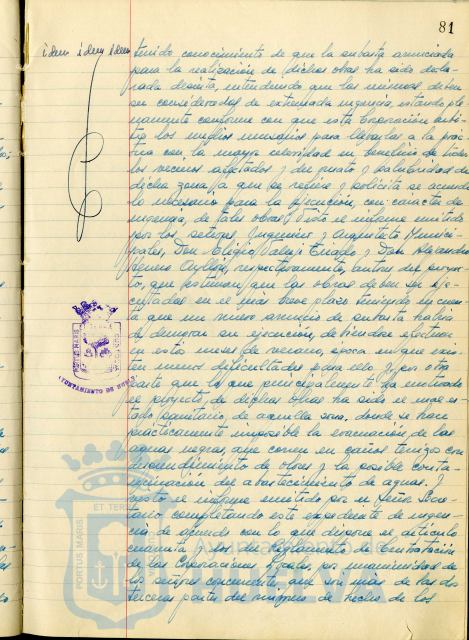 81
idem idem idem
tenido conocimiento de que la subasta anunciada
para la realización de dichas obras ha sido decla-
rada desierta, entendiendo que las mismas deben
ser consideradas de extremada urgencia, estando ple-
namente conforme con que esta Corporación arbi-
tre los medios necesarios para llevarlas a la prác-
tica con la mayor celeridad en beneficio de todos
los vecinos afectados y del ornato y salubridad de
dicha zona, a que se refiere y solicita se acuerde
lo necesario para la ejecución, con carácter de
urgencia, de tales obras. Visto el informe emitido
por los señores Ingeniero y Arquitecto Munici-
pales, Don y Don Alejandro
Herrero Ayllón, respectivamente, autores del proyec-
to, que estiman que las obras deben ser eje-
cutadas en el más breve plazo teniendo en cuen-
ta que un nuevo anuncio de subasta habría
de demorar su ejecución, debiéndose efectuar
en estos meses de verano, época en que exis-
ten menos dificultades para ello y, por otra
parte que lo que principalmente ha motivado
el proyecto, de dichas obras ha sido el mal es-
tado sanitario, de aquella zona, donde se hace
prácticamente imposible la evacuación, de las
aguas negras, que corren en caños terrizos con
desprendimiento de olores y la posible conta-
minación del abastecimiento de aguas. Y
visto el informe emitido por el Señor Secre-
tario completando este expediente de urgen-
cia, de acuerdo con lo que dispone el artículo
cuarenta y uno del Reglamento de Contratación
de las Corporaciones Locales por unanimidad de
los señores concurrentes, que son más de las dos
terceras partes del número de hecho de los
AYUNTAMIENTO DE HUELVA
PORTUS MARIS
ET TERRAE